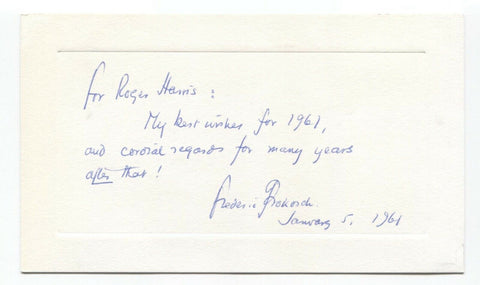 for Roger Harris :
My best wishes for 1961,
and cordial regards for many years
after that !
Frederic Prokosch.
January 5, 1961